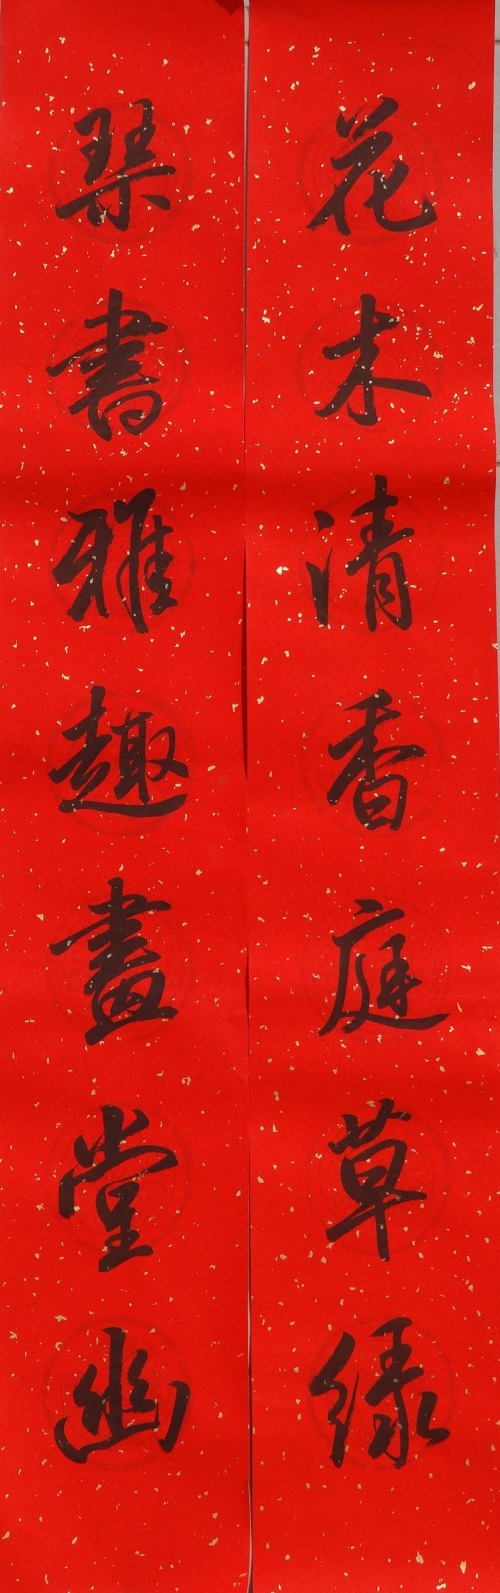 花木清香庭草绿
琴書雅趣畫堂幽